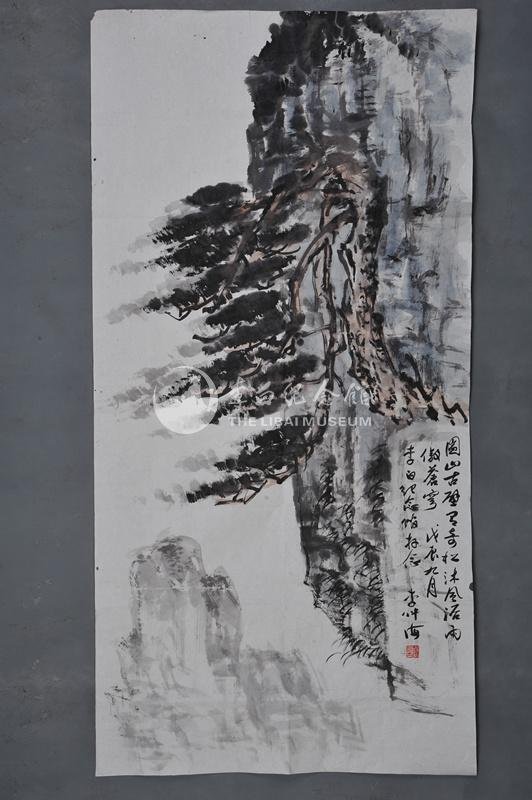 圌山古壁有奇松沐风浴雨
傲苍穹 戊辰九月
李白纪念馆存念 李
李白纪念馆
THE LIBAI MUSEUM